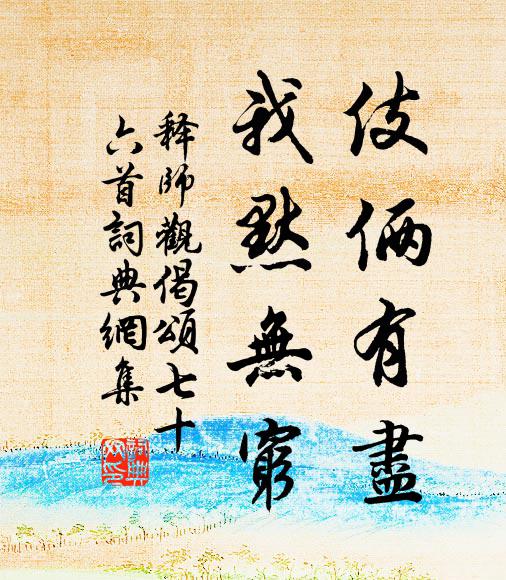 伎倆有盡
我默無窮
释師觀偈頌七十
六首詞典網集